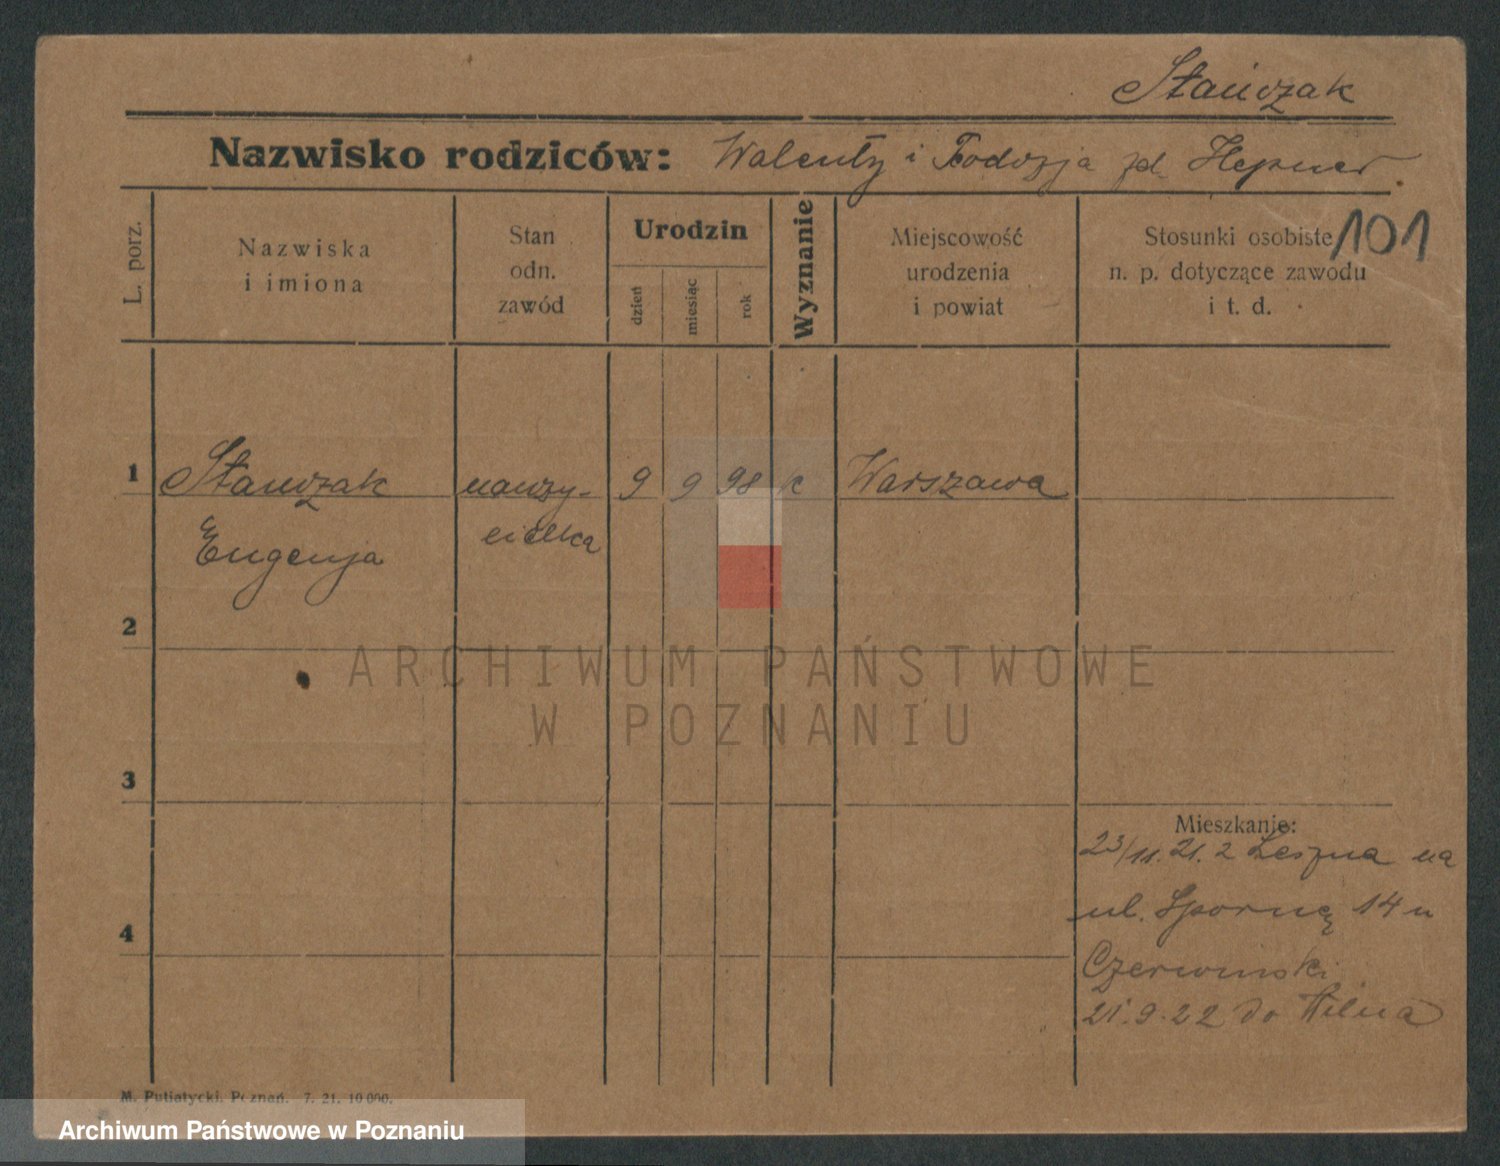 Stańczak
Nazwisko rodziców: Walenty i Teodozja zd. Hepner.
101
L. porz.
Nazwiska
i imiona
Stan
odn.
zawód
Urodzin
dzień
miesiąc
rok
Wyznanie
Miejscowość
urodzenia
i powiat
Stosunki osobiste
n. p. dotyczące zawodu
i t. d.
1 Stańczak nauczy- 9 9 98 k Warszawa
Eugenja cielka
2
ARCHIWUM PAŃSTWOWE
W POZNANIU
3
Mieszkanie:
23/11. 21. z Leszna na
ul. Sporną 14 u
4
Czerwinski
21.9.22 do Wilna
M. Putiatycki. Poznań. 7. 21. 10 000.
Archiwum Państwowe w Poznaniu